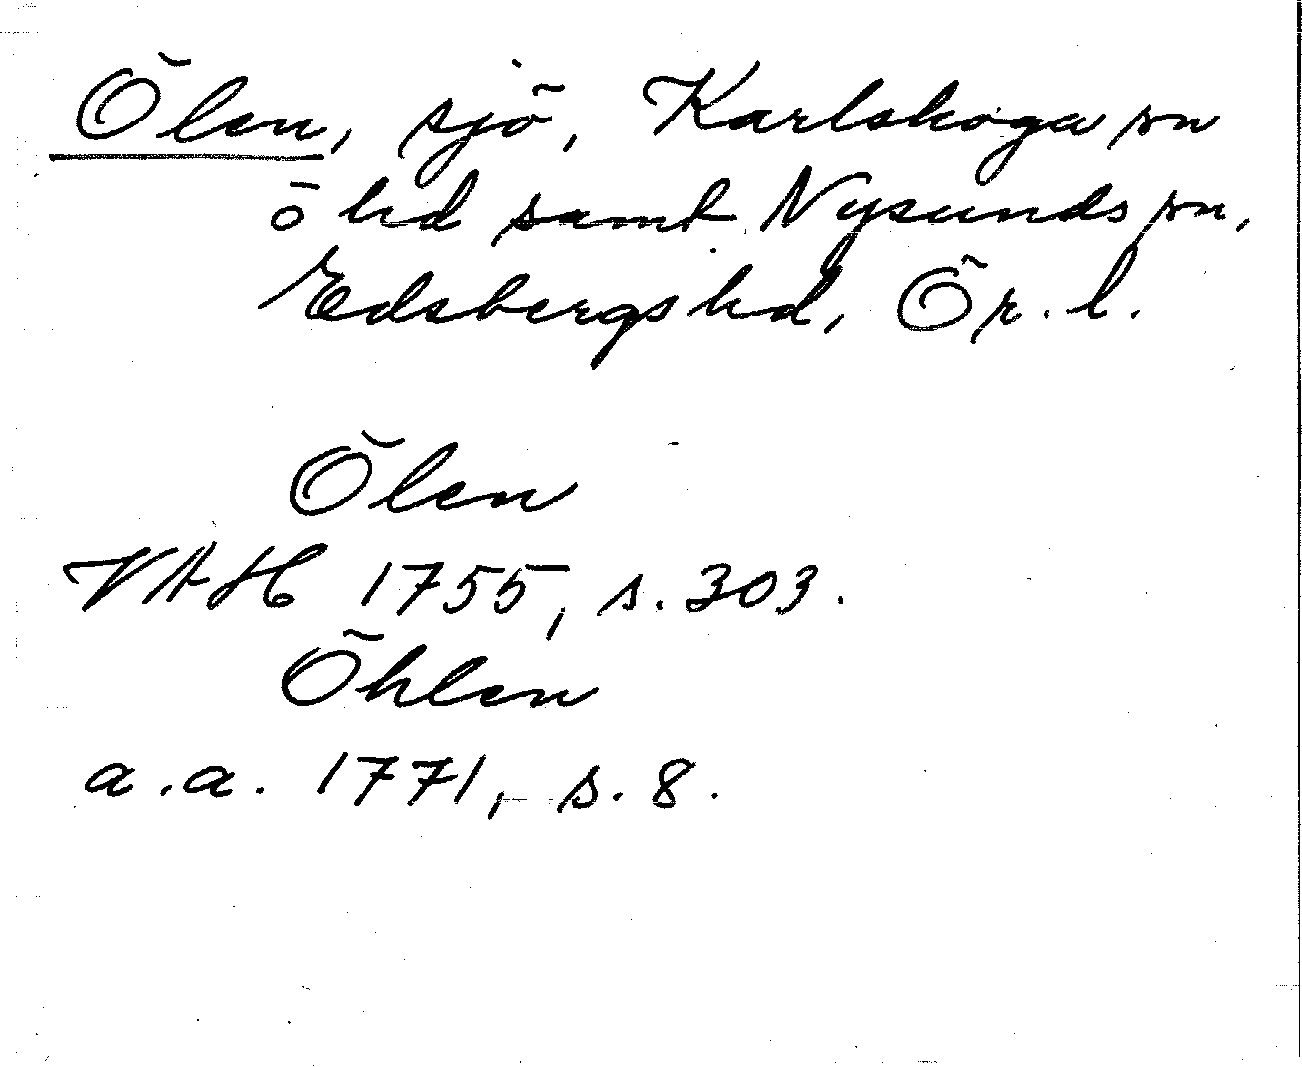 Ölen, sjö, Karlskoga sn
o hd samt Nysunds sn,
Edsbergs hd, Ör. l.
Ölen
VAH 1755, s. 303.
Öhlen
a.a. 1771, s. 8.